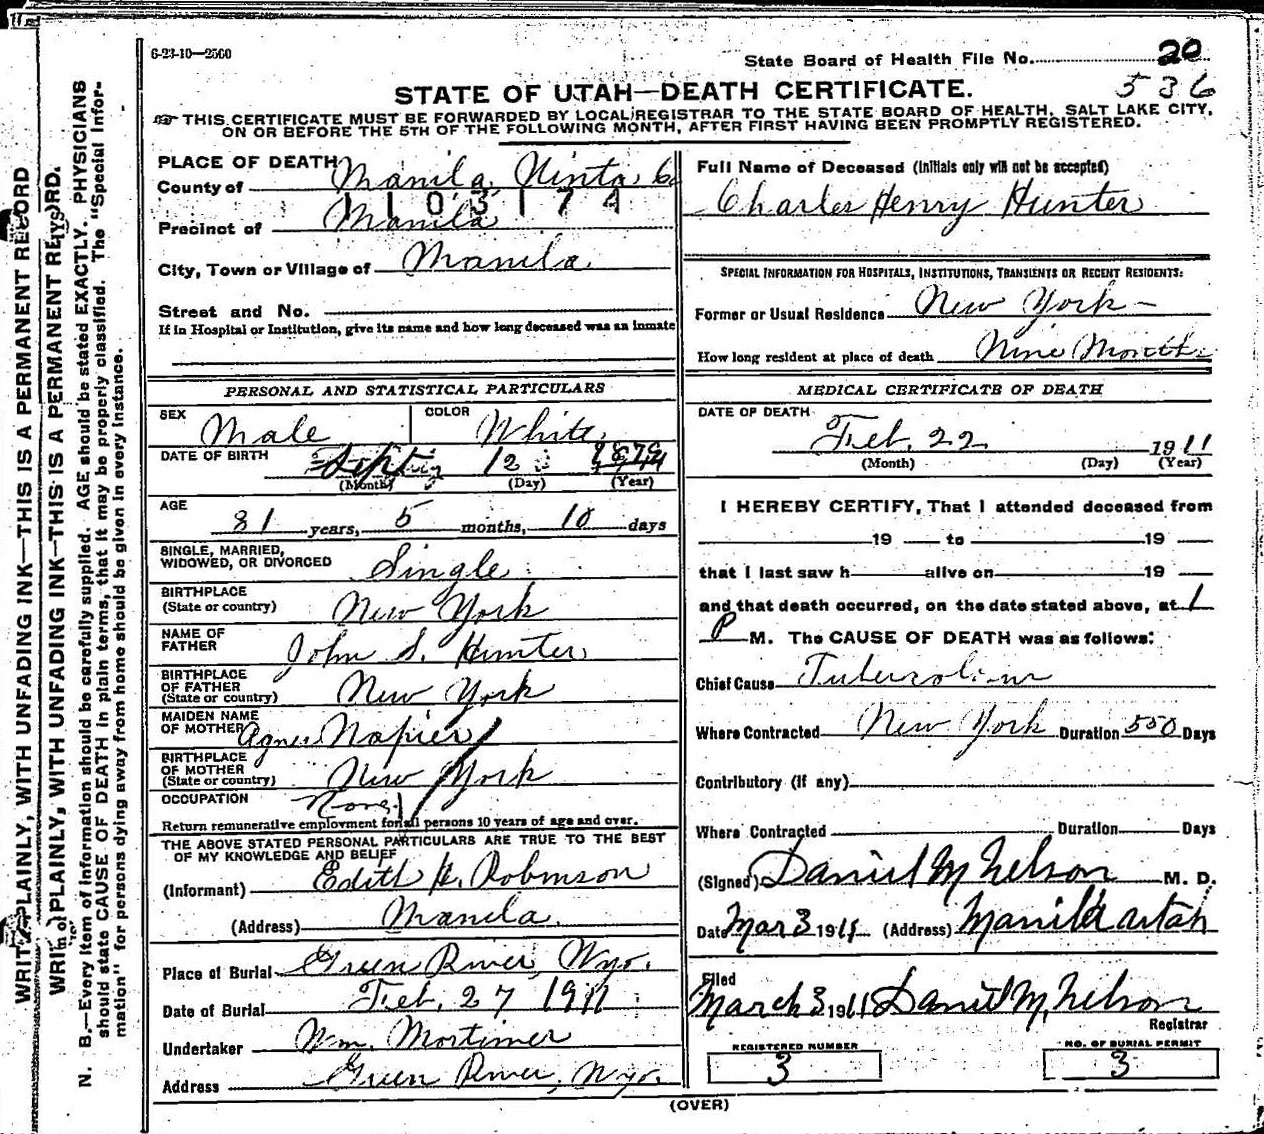 6-23-10—2500
State Board of Health File No. 20
536
STATE OF UTAH—DEATH CERTIFICATE.
THIS CERTIFICATE MUST BE FORWARDED BY LOCAL REGISTRAR TO THE STATE BOARD OF HEALTH, SALT LAKE CITY,
ON OR BEFORE THE 5TH OF THE FOLLOWING MONTH, AFTER FIRST HAVING BEEN PROMPTLY REGISTERED.
PLACE OF DEATH
County of Manila, Uinta Co
1103174
Precinct of Manila
City, Town or Village of Manila
Street and No.
If in Hospital or Institution, give its name and how long deceased was an inmate
PERSONAL AND STATISTICAL PARTICULARS
SEX Male COLOR White
DATE OF BIRTH Sept 12 1879
(Month) (Day) (Year)
AGE
31 years, 5 months, 10 days
SINGLE, MARRIED,
WIDOWED, OR DIVORCED Single
BIRTHPLACE
(State or country) New York
NAME OF
FATHER John S. Hunter
BIRTHPLACE
OF FATHER
(State or country) New York
MAIDEN NAME
OF MOTHER Agnes Napier
BIRTHPLACE
OF MOTHER
(State or country) New York
OCCUPATION None
Return remunerative employment for all persons 10 years of age and over.
THE ABOVE STATED PERSONAL PARTICULARS ARE TRUE TO THE BEST
OF MY KNOWLEDGE AND BELIEF
(Informant) Edith H. Robinson
(Address) Manila
Place of Burial Green River, Wyo.
Date of Burial Feb. 27 1911
Undertaker Wm. Mortimer
Address Green River, Wyo.
Full Name of Deceased (Initials only will not be accepted)
Charles Henry Hunter
SPECIAL INFORMATION FOR HOSPITALS, INSTITUTIONS, TRANSIENTS OR RECENT RESIDENTS:
Former or Usual Residence New York
How long resident at place of death Nine Month
MEDICAL CERTIFICATE OF DEATH
DATE OF DEATH
Feb. 22 1911
(Month) (Day) (Year)
I HEREBY CERTIFY, That I attended deceased from
19 to 19
that I last saw h alive on 19
and that death occurred, on the date stated above, at 1
P M. The CAUSE OF DEATH was as follows:
Chief Cause
Where Contracted New York Duration 550 Days
Contributory (if any)
Where Contracted Duration Days
(Signed) Daniel M Nelson M. D.
Date Mar 3 1911 (Address) Manila Utah
Filed
March 3 1911 Daniel M. Nelson
Registrar
REGISTERED NUMBER
3
NO. OF BURIAL PERMIT
3
(OVER)
WRITE PLAINLY, WITH UNFADING INK—THIS IS A PERMANENT RECORD
WRITE PLAINLY, WITH UNFADING INK—THIS IS A PERMANENT RECORD.
N. B.—Every item of information should be carefully supplied. AGE should be stated EXACTLY. PHYSICIANS
should state CAUSE OF DEATH in plain terms, that it may be properly classified. The "Special Infor-
mation" for persons dying away from home should be given in every instance.